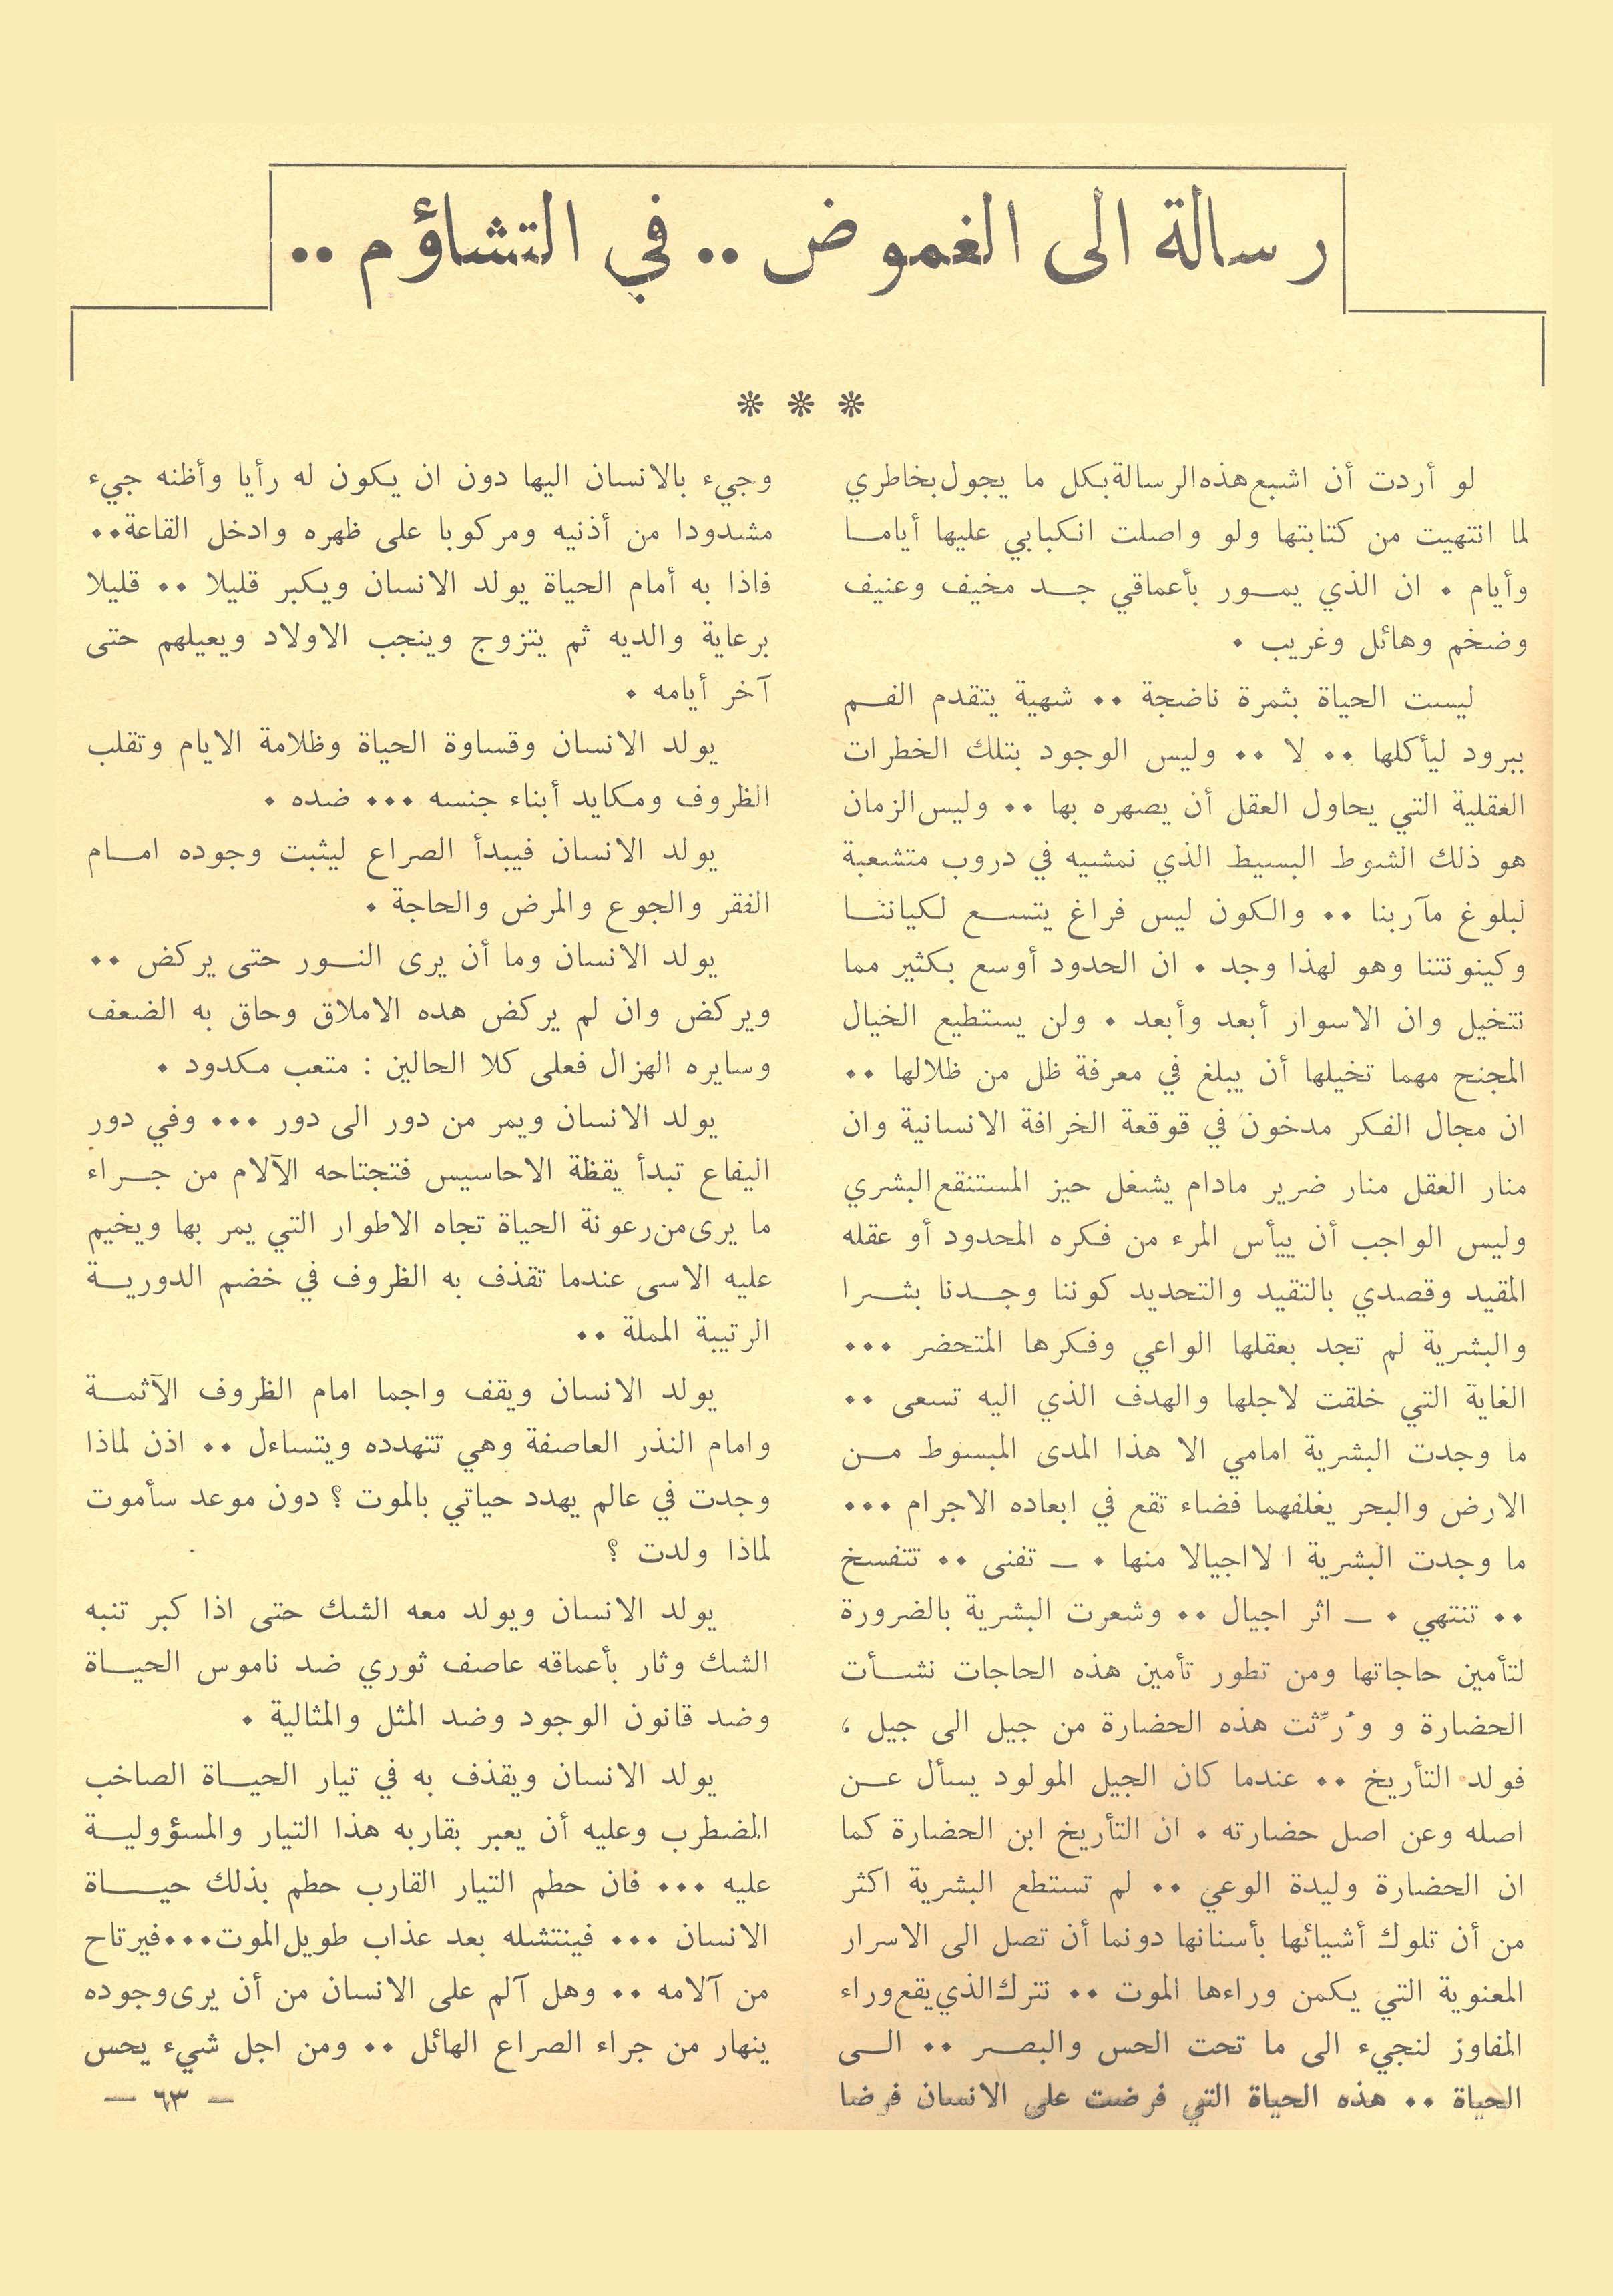 رسالة الى الغموض .. في التشاؤم ..
* * *
لو أردت أن اشبع هذه الرسالة بكل ما يجول بخاطري
لما انتهيت من كتابتها ولو واصلت انكبابي عليها أياما
وأيام . ان الذي يمور بأعماقي جد مخيف وعنيف
وضخم وهائل وغريب .
ليست الحياة بثمرة ناضجة .. شهية يتقدم الفم
ببرود ليأكلها .. لا .. وليس الوجود بتلك الخطرات
العقلية التي يحاول العقل أن يصهره بها .. وليس الزمان
هو ذلك الشوط البسيط الذي نمشيه في دروب متشعبة
لبلوغ مآربنا .. والكون ليس فراغ يتسع لكياننا
وكينونتنا وهو لهذا وجد . ان الحدود أوسع بكثير مما
نتخيل وان الاسوار أبعد وأبعد . ولن يستطيع الخيال
المجنح مهما تخيلها أن يبلغ في معرفة ظل من ظلالها ..
ان مجال الفكر مدخون في قوقعة الخرافة الانسانية وان
منار العقل منار ضرير مادام يشغل حيز المستنقع البشري
وليس الواجب أن ييأس المرء من فكره المحدود أو عقله
المقيد وقصدي بالتقيد والتحديد كوننا وجدنا بشرا
والبشرية لم تجد بعقلها الواعي وفكرها المتحضر ...
الغاية التي خلقت لاجلها والهدف الذي اليه تسعى ..
ما وجدت البشرية امامي الا هذا المدى المبسوط من
الارض والبحر يغلفهما فضاء تقع في ابعاده الاجرام ...
ما وجدت البشرية ا لااجيالا منها . ــ تفنى .. تتفسخ
.. تنتهي . ــ اثر اجيال .. وشعرت البشرية بالضرورة
لتأمين حاجاتها ومن تطور تأمين هذه الحاجات نشأت
الحضارة و وُرِّثت هذه الحضارة من جيل الى جيل ،
فولد التأريخ .. عندما كان الجيل المولود يسأل عن
اصله وعن اصل حضارته . ان التأريخ ابن الحضارة كما
ان الحضارة وليدة الوعي .. لم تستطع البشرية اكثر
من أن تلوك أشيائها بأسنانها دونما أن تصل الى الاسرار
المعنوية التي يكمن وراءها الموت .. نترك الذي يقع وراء
المفاوز لنجيء الى ما تحت الحس والبصر .. الى
الحياة .. هذه الحياة التي فرضت على الانسان فرضا
وجيء بالانسان اليها دون ان يكون له رأيا وأظنه جيء
مشدودا من أذنيه ومركوبا على ظهره وادخل القاعة..
فاذا به أمام الحياة يولد الانسان ويكبر قليلا .. قليلا
برعاية والديه ثم يتزوج وينجب الاولاد ويعيلهم حتى
آخر أيامه .
يولد الانسان وقساوة الحياة وظلامة الايام وتقلب
الظروف ومكايد أبناء جنسه ... ضده .
يولد الانسان فيبدأ الصراع ليثبت وجوده امام
الفقر والجوع والمرض والحاجة .
يولد الانسان وما أن يرى النور حتى يركض ..
ويركض وان لم يركض هده الاملاق وحاق به الضعف
وسايره الهزال فعلى كلا الحالين : متعب مكدود .
يولد الانسان ويمر من دور الى دور ... وفي دور
اليفاع تبدأ يقظة الاحاسيس فتجتاحه الآلام من جراء
ما يرى من رعونة الحياة تجاه الاطوار التي يمر بها ويخيم
عليه الاسى عندما تقذف به الظروف في خضم الدورية
الرتيبة المملة ..
يولد الانسان ويقف واجما امام الظروف الآثمة
وامام النذر العاصفة وهي تتهدده ويتساءل .. اذن لماذا
وجدت في عالم يهدد حياتي بالموت ؟ دون موعد سأموت
لماذا ولدت ؟
يولد الانسان ويولد معه الشك حتى اذا كبر تنبه
الشك وثار بأعماقه عاصف ثوري ضد ناموس الحياة
وضد قانون الوجود وضد المثل والمثالية .
يولد الانسان ويقذف به في تيار الحياة الصاخب
المضطرب وعليه أن يعبر بقاربه هذا التيار والمسؤولية
عليه ... فان حطم التيار القارب حطم بذلك حياة
الانسان ... فينتشله بعد عذاب طويل الموت...فيرتاح
من آلامه .. وهل آلم على الانسان من أن يرى وجوده
ينهار من جراء الصراع الهائل .. ومن اجل شيء يحس
— ٦٣ —